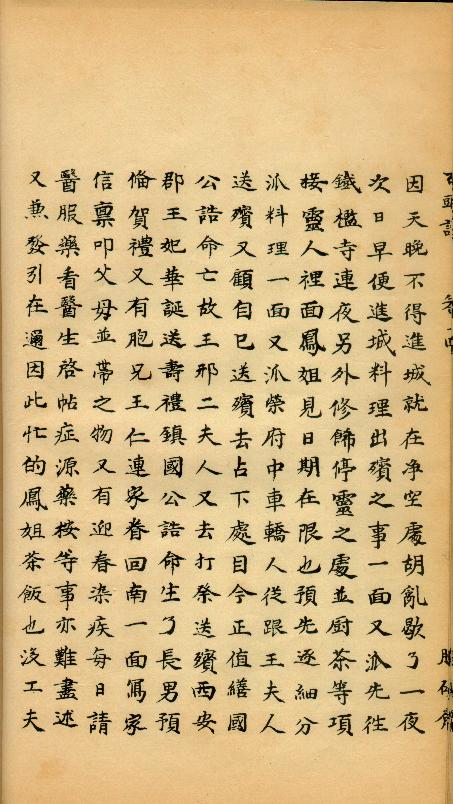 因天晚不得進城就在净空處胡亂歇了一夜
次日早便進城料理出殯之事一面又派先往
鐵檻寺連夜另外修飾停靈之處並厨茶等項
接靈人裡面鳳姐見日期在限也預先逐細分
派料理一面又派榮府中車轎人從跟王夫人
送殯又顧自己送殯去占下處目今正值繕國
公誥命亡故王邢二夫人又去打祭送殯西安
郡王妃華誕送壽禮鎮國公誥命生了長男預
俻賀禮又有胞兄王仁連家眷回南一面寫家
信禀叩父母並帶之物又有迎春染疾每日請
醫服藥看醫生啓帖症源藥按等事亦難盡述
又兼發引在邇因此忙的鳳姐茶飯也沒工夫